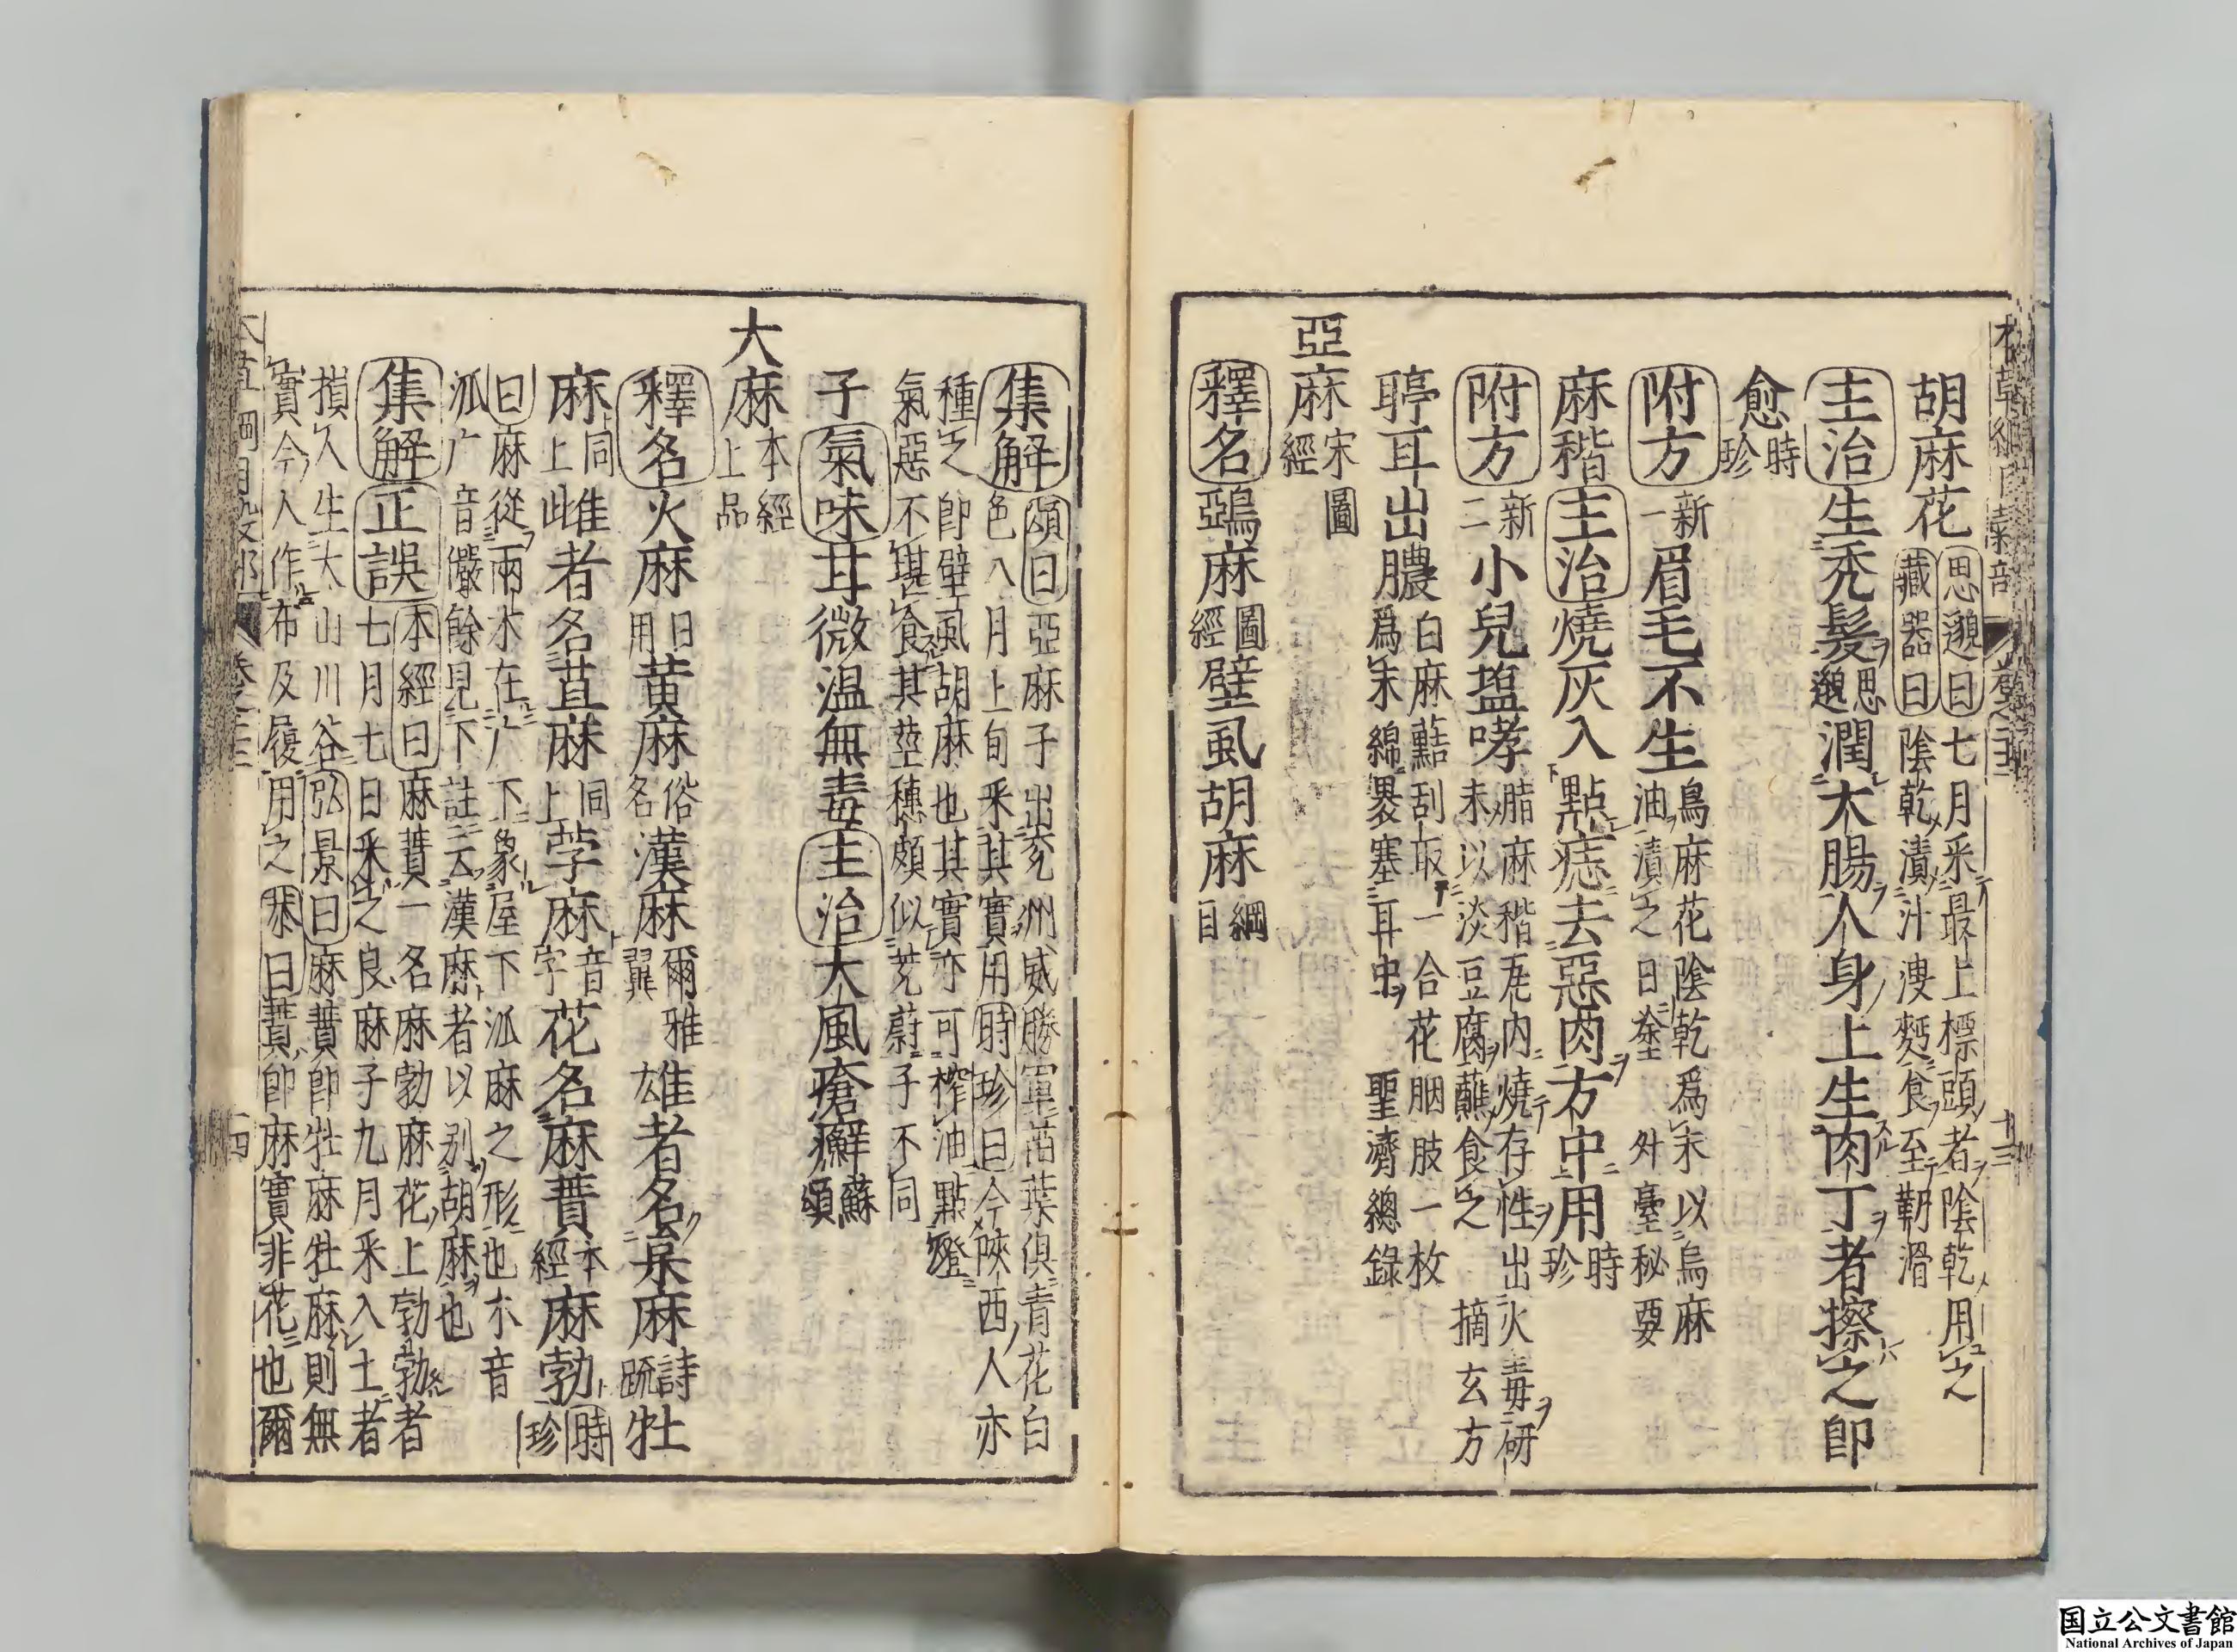 胡麻花思邈曰七月采最上標頭者陰乾用之
藏器曰陰乾漬汁溲麪食至韌滑
主治生禿髮思邈潤大腸人身上生肉丁者擦之即
愈時珍
附方新一眉毛不生烏麻花陰乾爲末以烏麻
油漬之日塗 外臺秘要
麻稭主治燒灰入點痣去惡肉方中用時珍
附方新二小兒塩哮腊麻稭瓦內燒存性出火毒研
末以淡豆腐蘸食之 摘玄方
聤耳出膿白麻䕸刮取一合花胭肢一枚
爲末綿褁塞耳中 聖濟總錄
亞麻宋圖經
釋名鵶麻圖經壁虱胡麻綱目
集解頌曰亞麻子出兗州威勝軍苗葉俱青花白
色八月上旬采其實用時珍曰今陝西人亦
種之即壁虱胡麻也其實亦可榨油點燈
氣惡不堪食其莖穗頗似茺蔚子不同
子氣味甘微温無毒主治大風瘡癬蘇頌
大麻本經上品
釋名火麻日用黄麻俗名漢麻爾雅翼雄者名枲麻詩疏牡
麻同上雌者名苴麻同上荸麻音字花名麻蕡本經麻勃時珍
曰麻從兩木在广下象屋下派麻之形也木音
派广音儼餘見下註云漢麻者以別胡麻也
集解正誤本經曰麻蕡一名麻勃麻花上勃勃者
七月七日采之良麻子九月采入土者
損人生太山川谷弘景曰麻蕡即牡麻牡麻則無
實今人作布及履用之恭曰蕡即麻實非花也爾
四
国立公文書館
National Archives of Japan